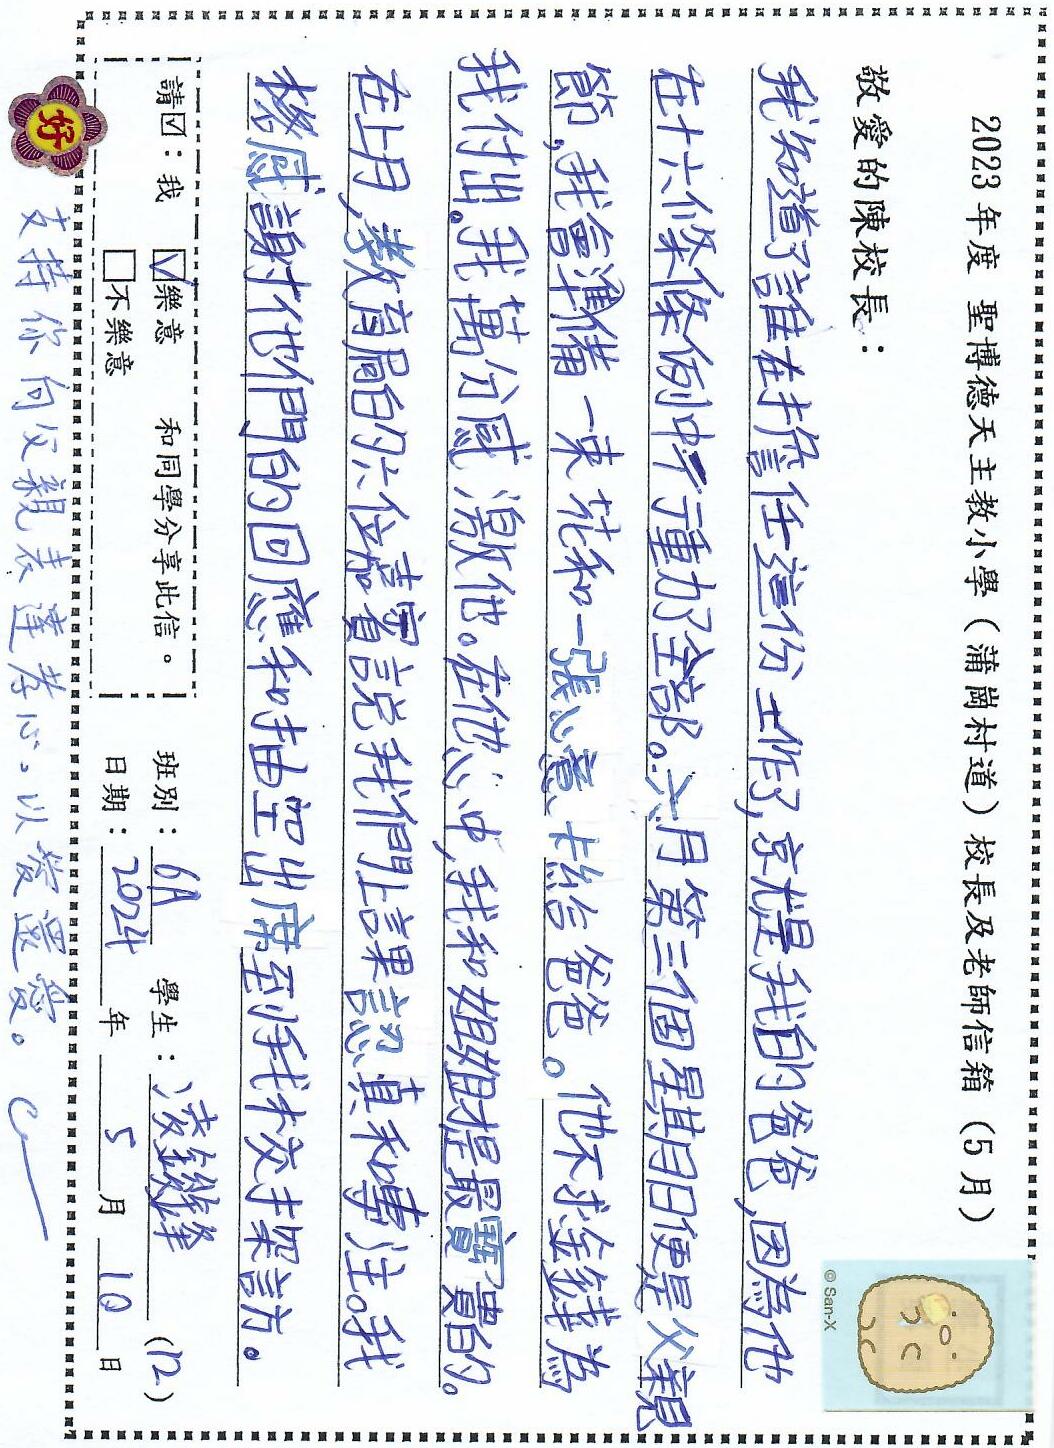 2023 年度 聖博德天主教小學（蒲崗村道）校長及老師信箱（5 月）
敬愛的陳校長：
我知道了誰在擔任這份工作了，竟是我的爸爸，因為他
在十六條條例中行重力了全部。六月第三個星期日便是父親
節，我會準備一束花和一張心意卡給爸爸。他不求金錢為
我付出。我萬分感激他。在他心中，我和姐姐才是最寶貴的。
在上月，教育局的六位嘉賓說我們上課認真和專注。我
感謝他們的回應和抽空出席到我校探訪。
請☑：我 ☑樂意 和同學分享此信。
□不樂意
班別：6A 學生：凌 鋒 (12)
日期：2024 年 5 月 10 日
好
支持你向父親表達孝心，以愛還愛。
© San-X